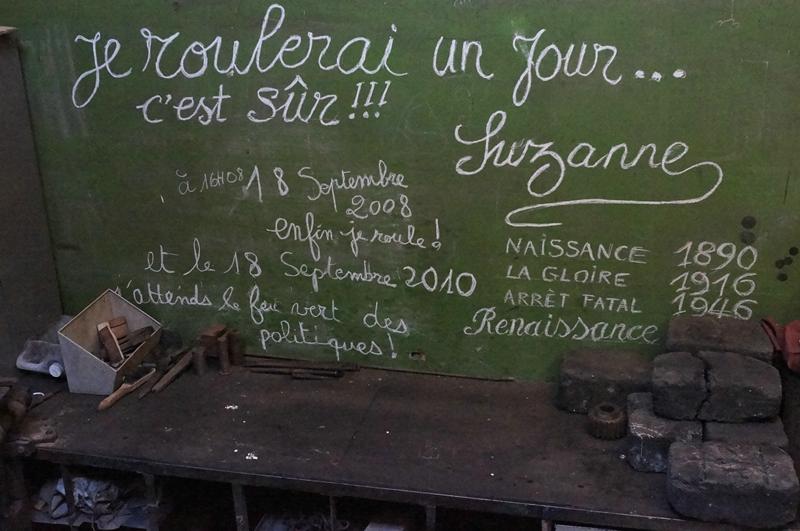 Je roulerai un jour...
c'est sûr!!!
Suzanne
à 16H08 18 Septembre
2008
enfin je roule!
et le 18 Septembre 2010
j'attends le feu vert des
politiques!
NAISSANCE 1890
LA GLOIRE 1916
ARRÊT FATAL 1946
Renaissance